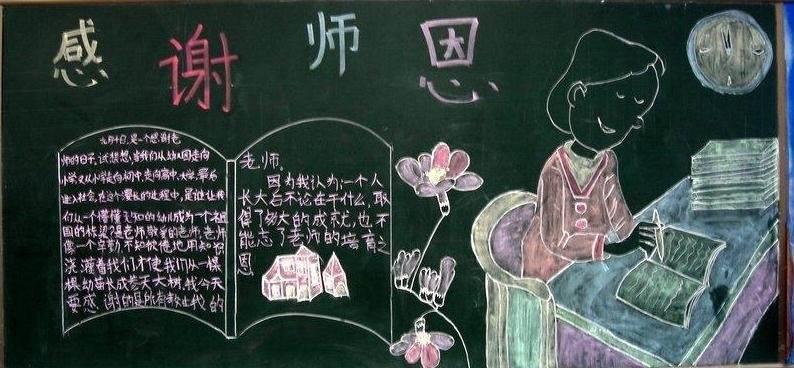 感谢师恩
九月十日,是一个感谢老
师的日子,试想想,当我们从幼儿园走向
小学又从小学走向初中,走向高中,大学,最后
进入社会,在这个漫长的过程中,是谁让我
们从一个懵懂无知的幼儿成为一个
国的栋梁?是老师敬爱的老师,老师
像一个辛勤不知疲倦地用知识
浇灌着我们,才使我们从一棵
棵幼苗长成参天大树,我今天
要感谢的是所有教过我的
老师。
因为我认为:一个人
长大后不论在干什么,取
得了多大的成就,也不
能忘了老师的培育之
恩